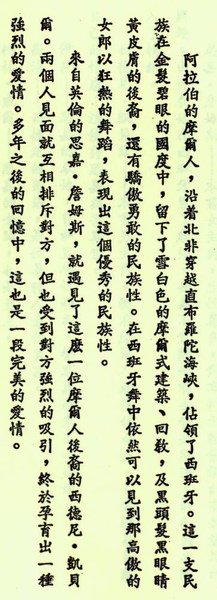 阿拉伯的摩爾人，沿着北非穿越直布羅陀海峽，佔領了西班牙。這一支民
族在金髮碧眼的國度中，留下了雪白色的摩爾式建築、回敎，及黑頭髮黑眼睛
黃皮膚的後裔，還有驕傲勇敢的民族性。在西班牙舞中依然可以見到那高傲的
女郎以狂熱的舞蹈，表現出這個優秀的民族性。
來自英倫的思嘉．詹姆斯，就遇見了這麼一位摩爾人後裔的西德尼．凱貝
爾。兩個人見面就互相排斥對方，但也受到對方強烈的吸引，終於孕育出一種
強烈的愛情。多年之後的回憶中，這也是一段完美的愛情。